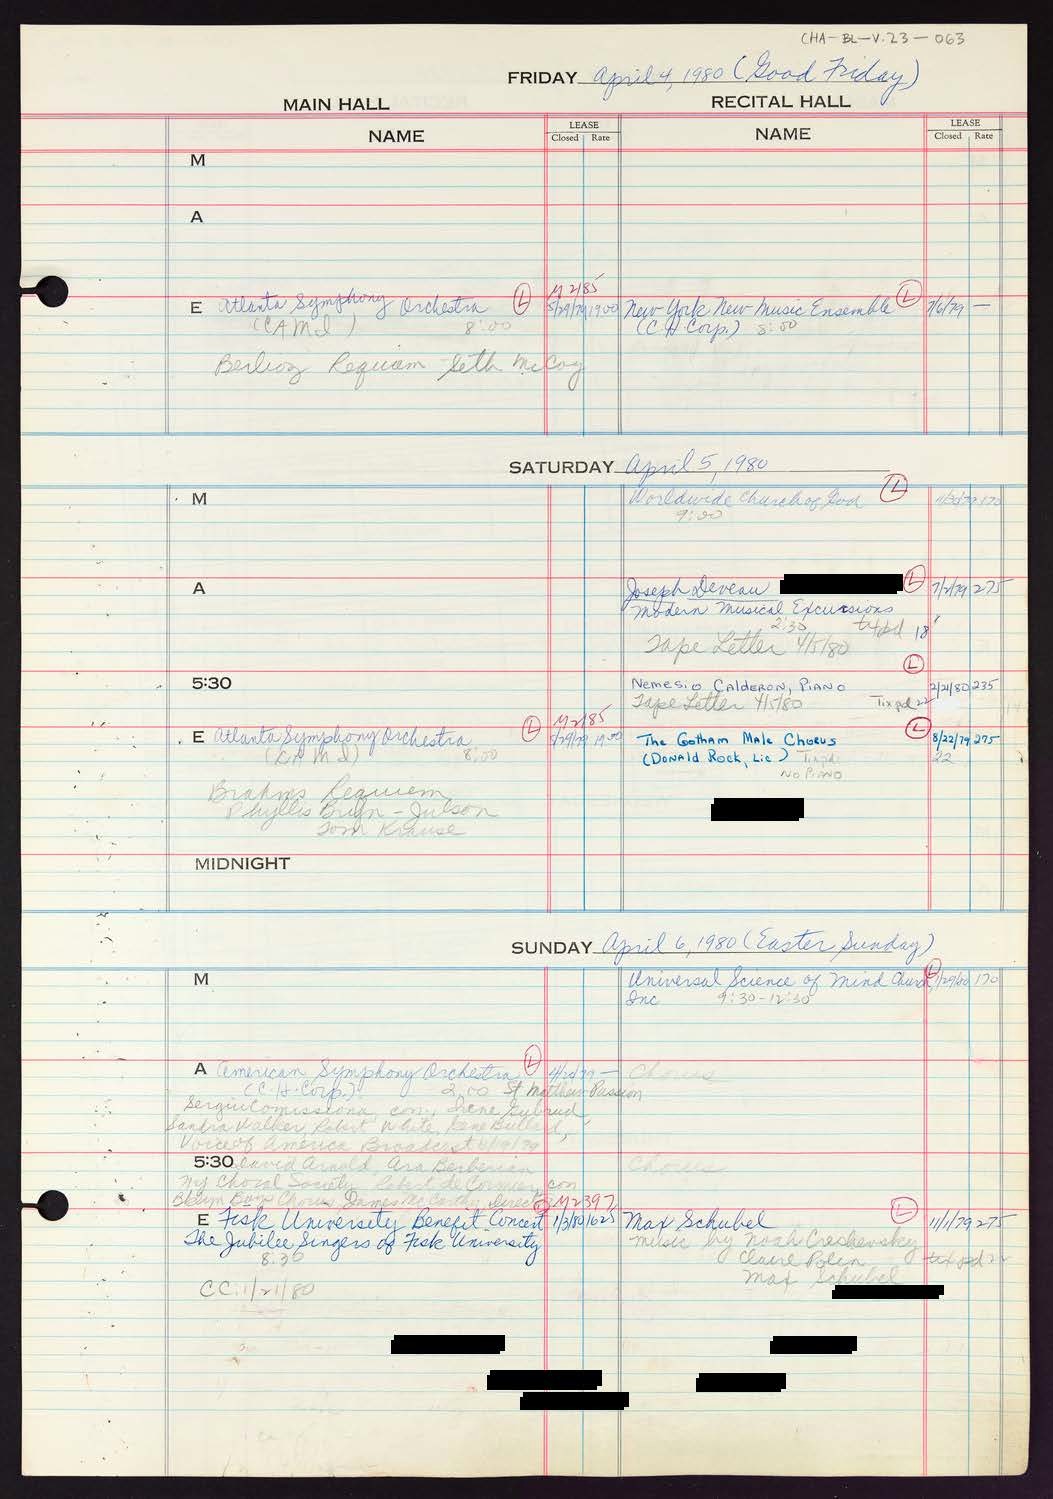 CHA-BL-V.23-063
FRIDAY April 4, 1980 (Good Friday)
MAIN HALL
RECITAL HALL
NAME
LEASE
Closed Rate
NAME
LEASE
Closed Rate
M
A
M 2185
E Atlanta Symphony Orchestra L 5/29/79 1900
(CAMI) 8:00
Berlioz Requiem - Seth McCoy
New York New Music Ensemble L 7/6/79 —
(C H Corp.) 8:00
SATURDAY April 5, 1980
M
Worldwide Church of God L 170
9:30
A
Joseph Deveau L 7/2/79 275
Modern Musical Excursions
2:30 tix pd 18
Tape Letter 4/5/80
L
5:30
Nemesio Calderon, Piano 2/21/80 235
Tape Letter 4/5/80 Tix pd 22
M 2185
E Atlanta Symphony Orchestra L 5/29/79 1900
(CAMI) 8:00
Brahms Requiem
Phyllis Bryn-Julson
Tom Krause
The Gotham Male Chorus L 8/22/79 275
(Donald Rock, Lic) Tix pd 22
No Piano
MIDNIGHT
SUNDAY April 6, 1980 (Easter Sunday)
M
Universal Science of Mind Church, L 1/29/80 170
Inc 9:30-12:30
A American Symphony Orchestra L —
(C.H. Corp.) 2:00 St Matthew Passion
Sergiu Comissiona, con, Irene Gubrud
Sandra Walker, Robert White, Gene Bullard,
Voice of America Broadcast
Chorus
5:30 David Arnold, Ara Berberian
NY Choral Society Robert de Cormier, con
Bklyn Boys Chorus, James McCarthy, Direct
Chorus
L M 2397
E Fisk University Benefit Concert 1/3/80 1625
The Jubilee Singers of Fisk University
8:30
CC: 1/21/80
Max Schubel L 11/1/79 275
music by Noah Creshevsky
Claire Polin tix pd 22
Max Schubel